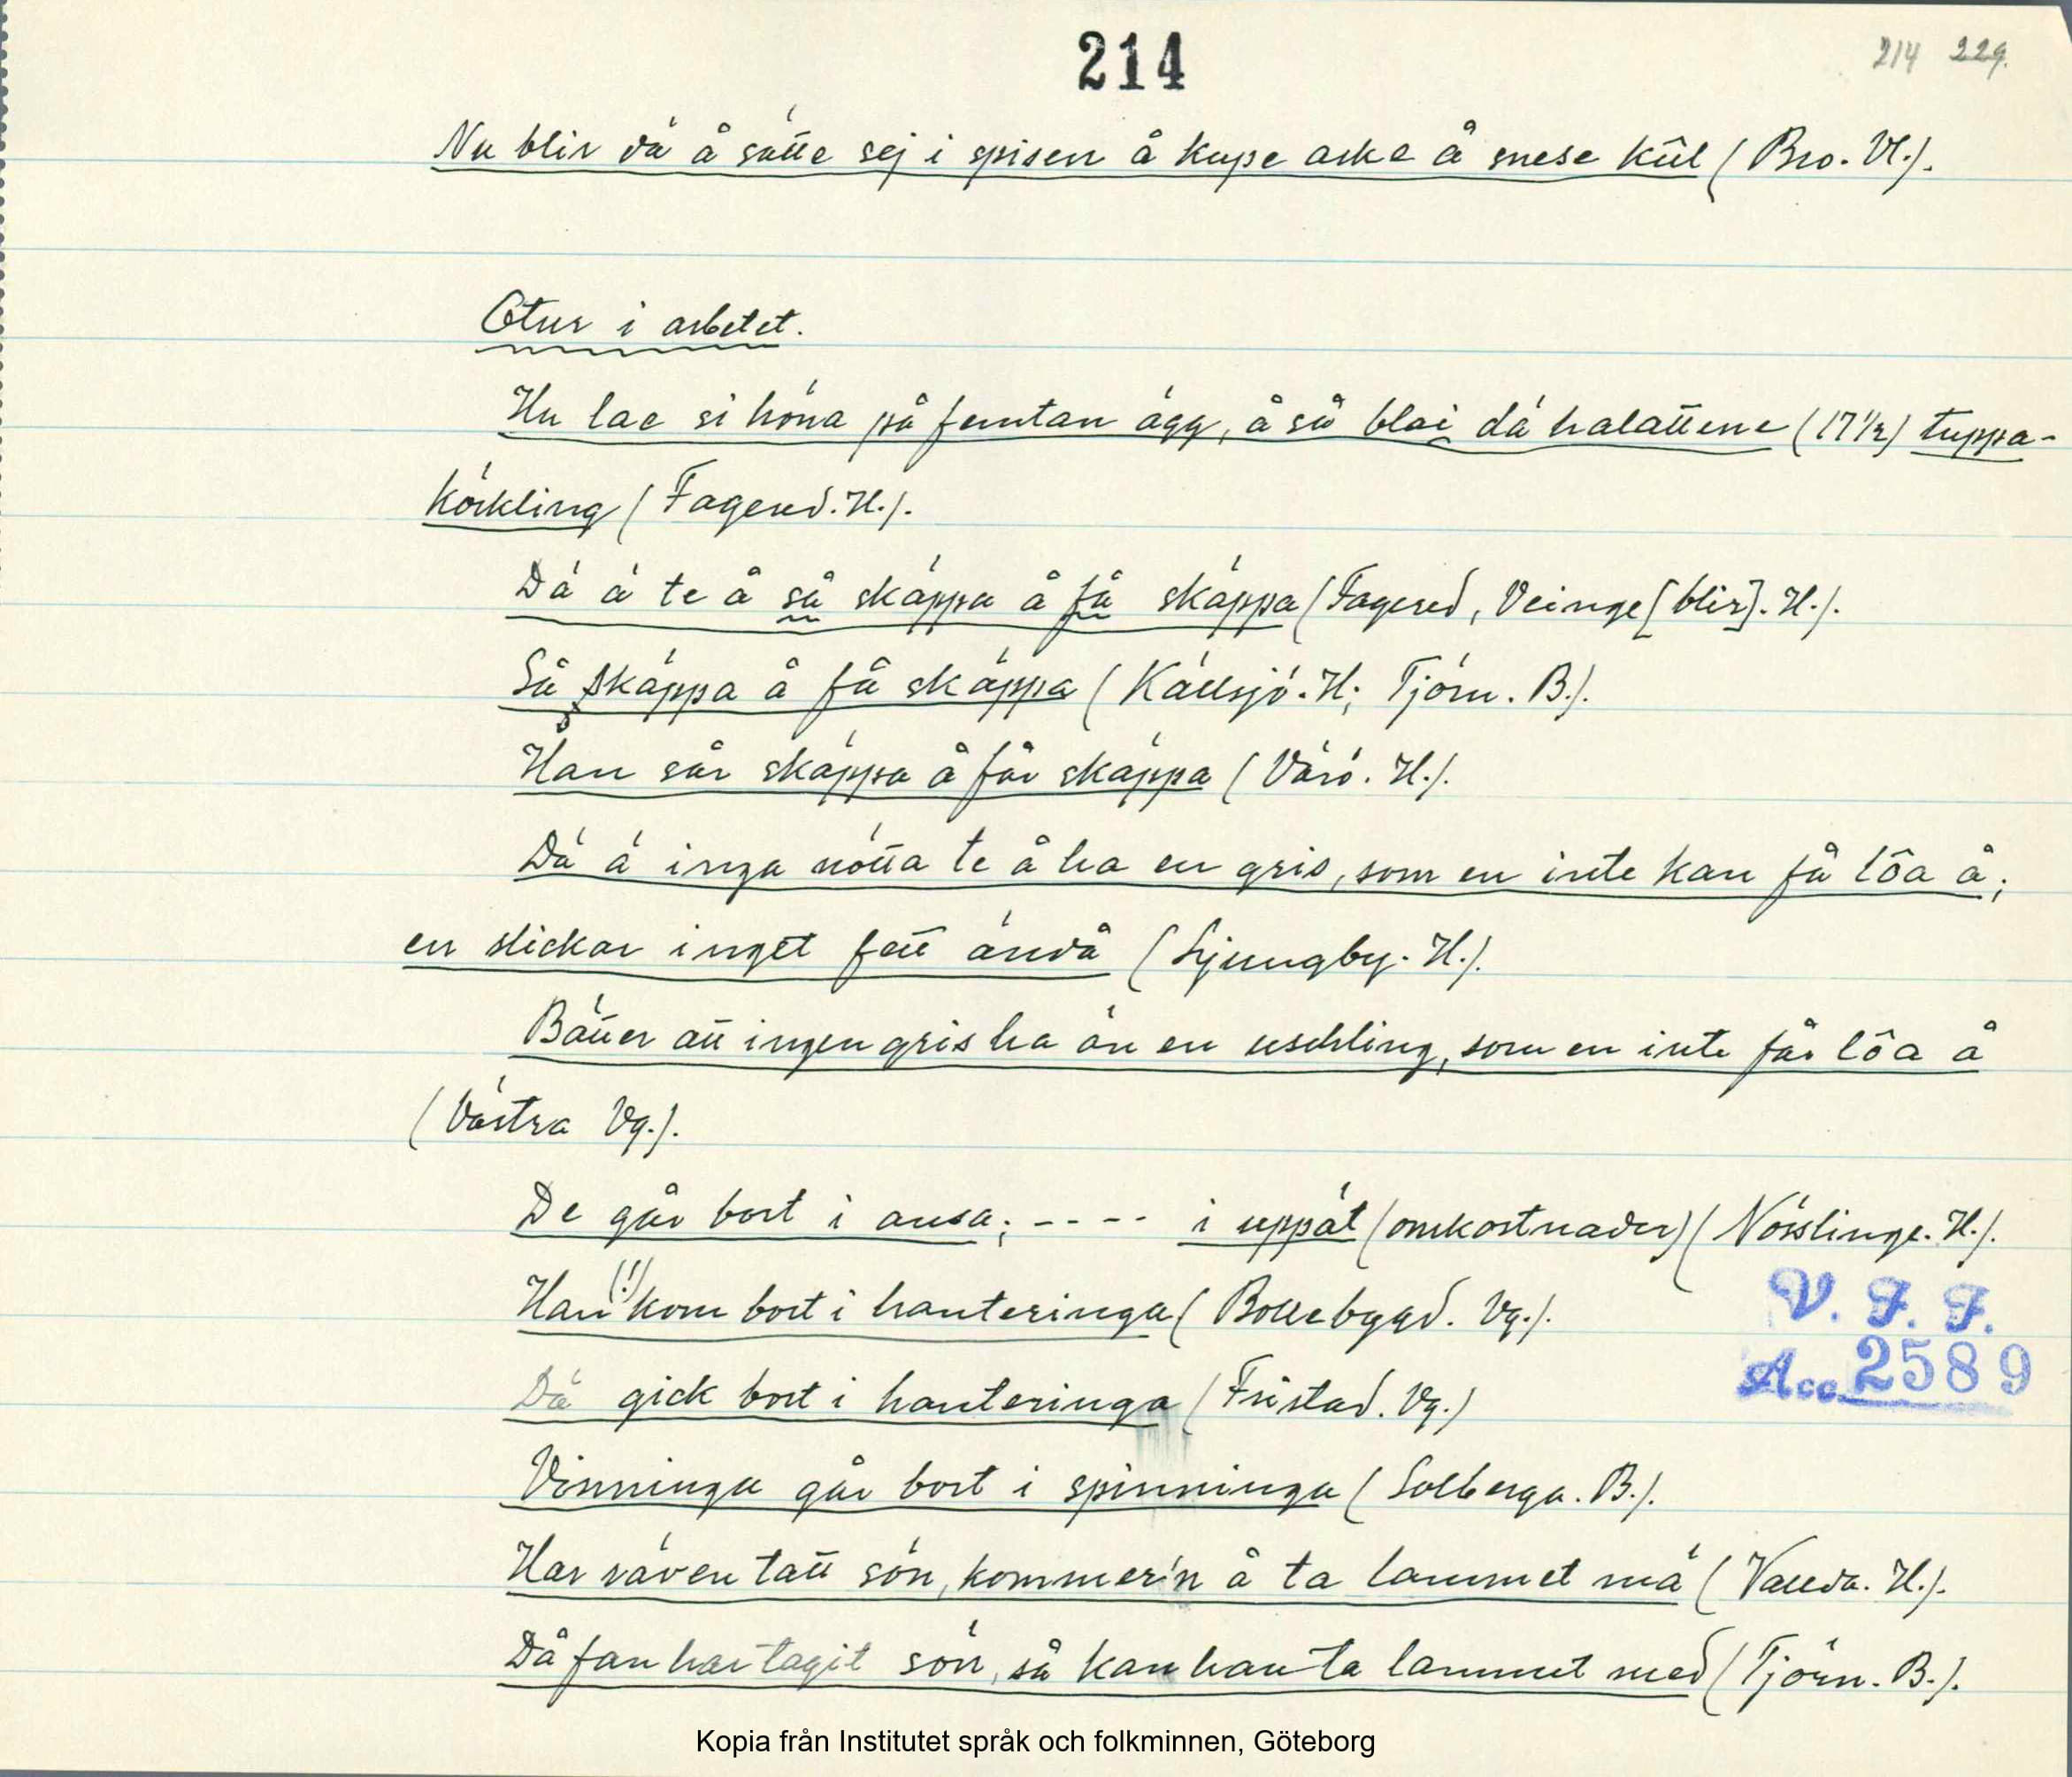 214
214 229.
Nu blir dä å sätte sej i spisen å kupe aske å snese kûl (Bro. Vl.).
Otur i arbetet.
Hu lae si höna på femtan ägg, å så blai dä halattene (17 1/2) tuppa-
köckling (Fagered. H.).
Dä ä te å så skäppa å få skäppa (Fagered, Veinge [blir]. H.).
Så skäppa å få skäppa (Källsjö. H; Tjörn. B.).
Han sår skäppa å får skäppa (Värö. H.).
Dä ä inga nötta te å ha en gris, som en inte kan få lôa å;
en slickar inget fett ändå (Ljungby. H.).
Bätter att ingen gris ha än en uschling, som en inte får lôa å
(Västra Vg.).
De går bort i ansa; ---- i uppät (omkostnader) (Nösslinge. H.).
Han (!) kom bort i hanteringa (Bollebygd. Vg.).
Dä gick bort i hanteringa (Fristad. Vg.)
Vinninga går bort i spinninga (Solberga. B.).
V. F. F.
Acc. 2589
Har räven tatt sön, kommer'n å ta lammet mä (Vallda. H.).
Då fan har tagit sön, så kan han ta lammet med (Tjörn. B.).
Kopia från Institutet språk och folkminnen, Göteborg